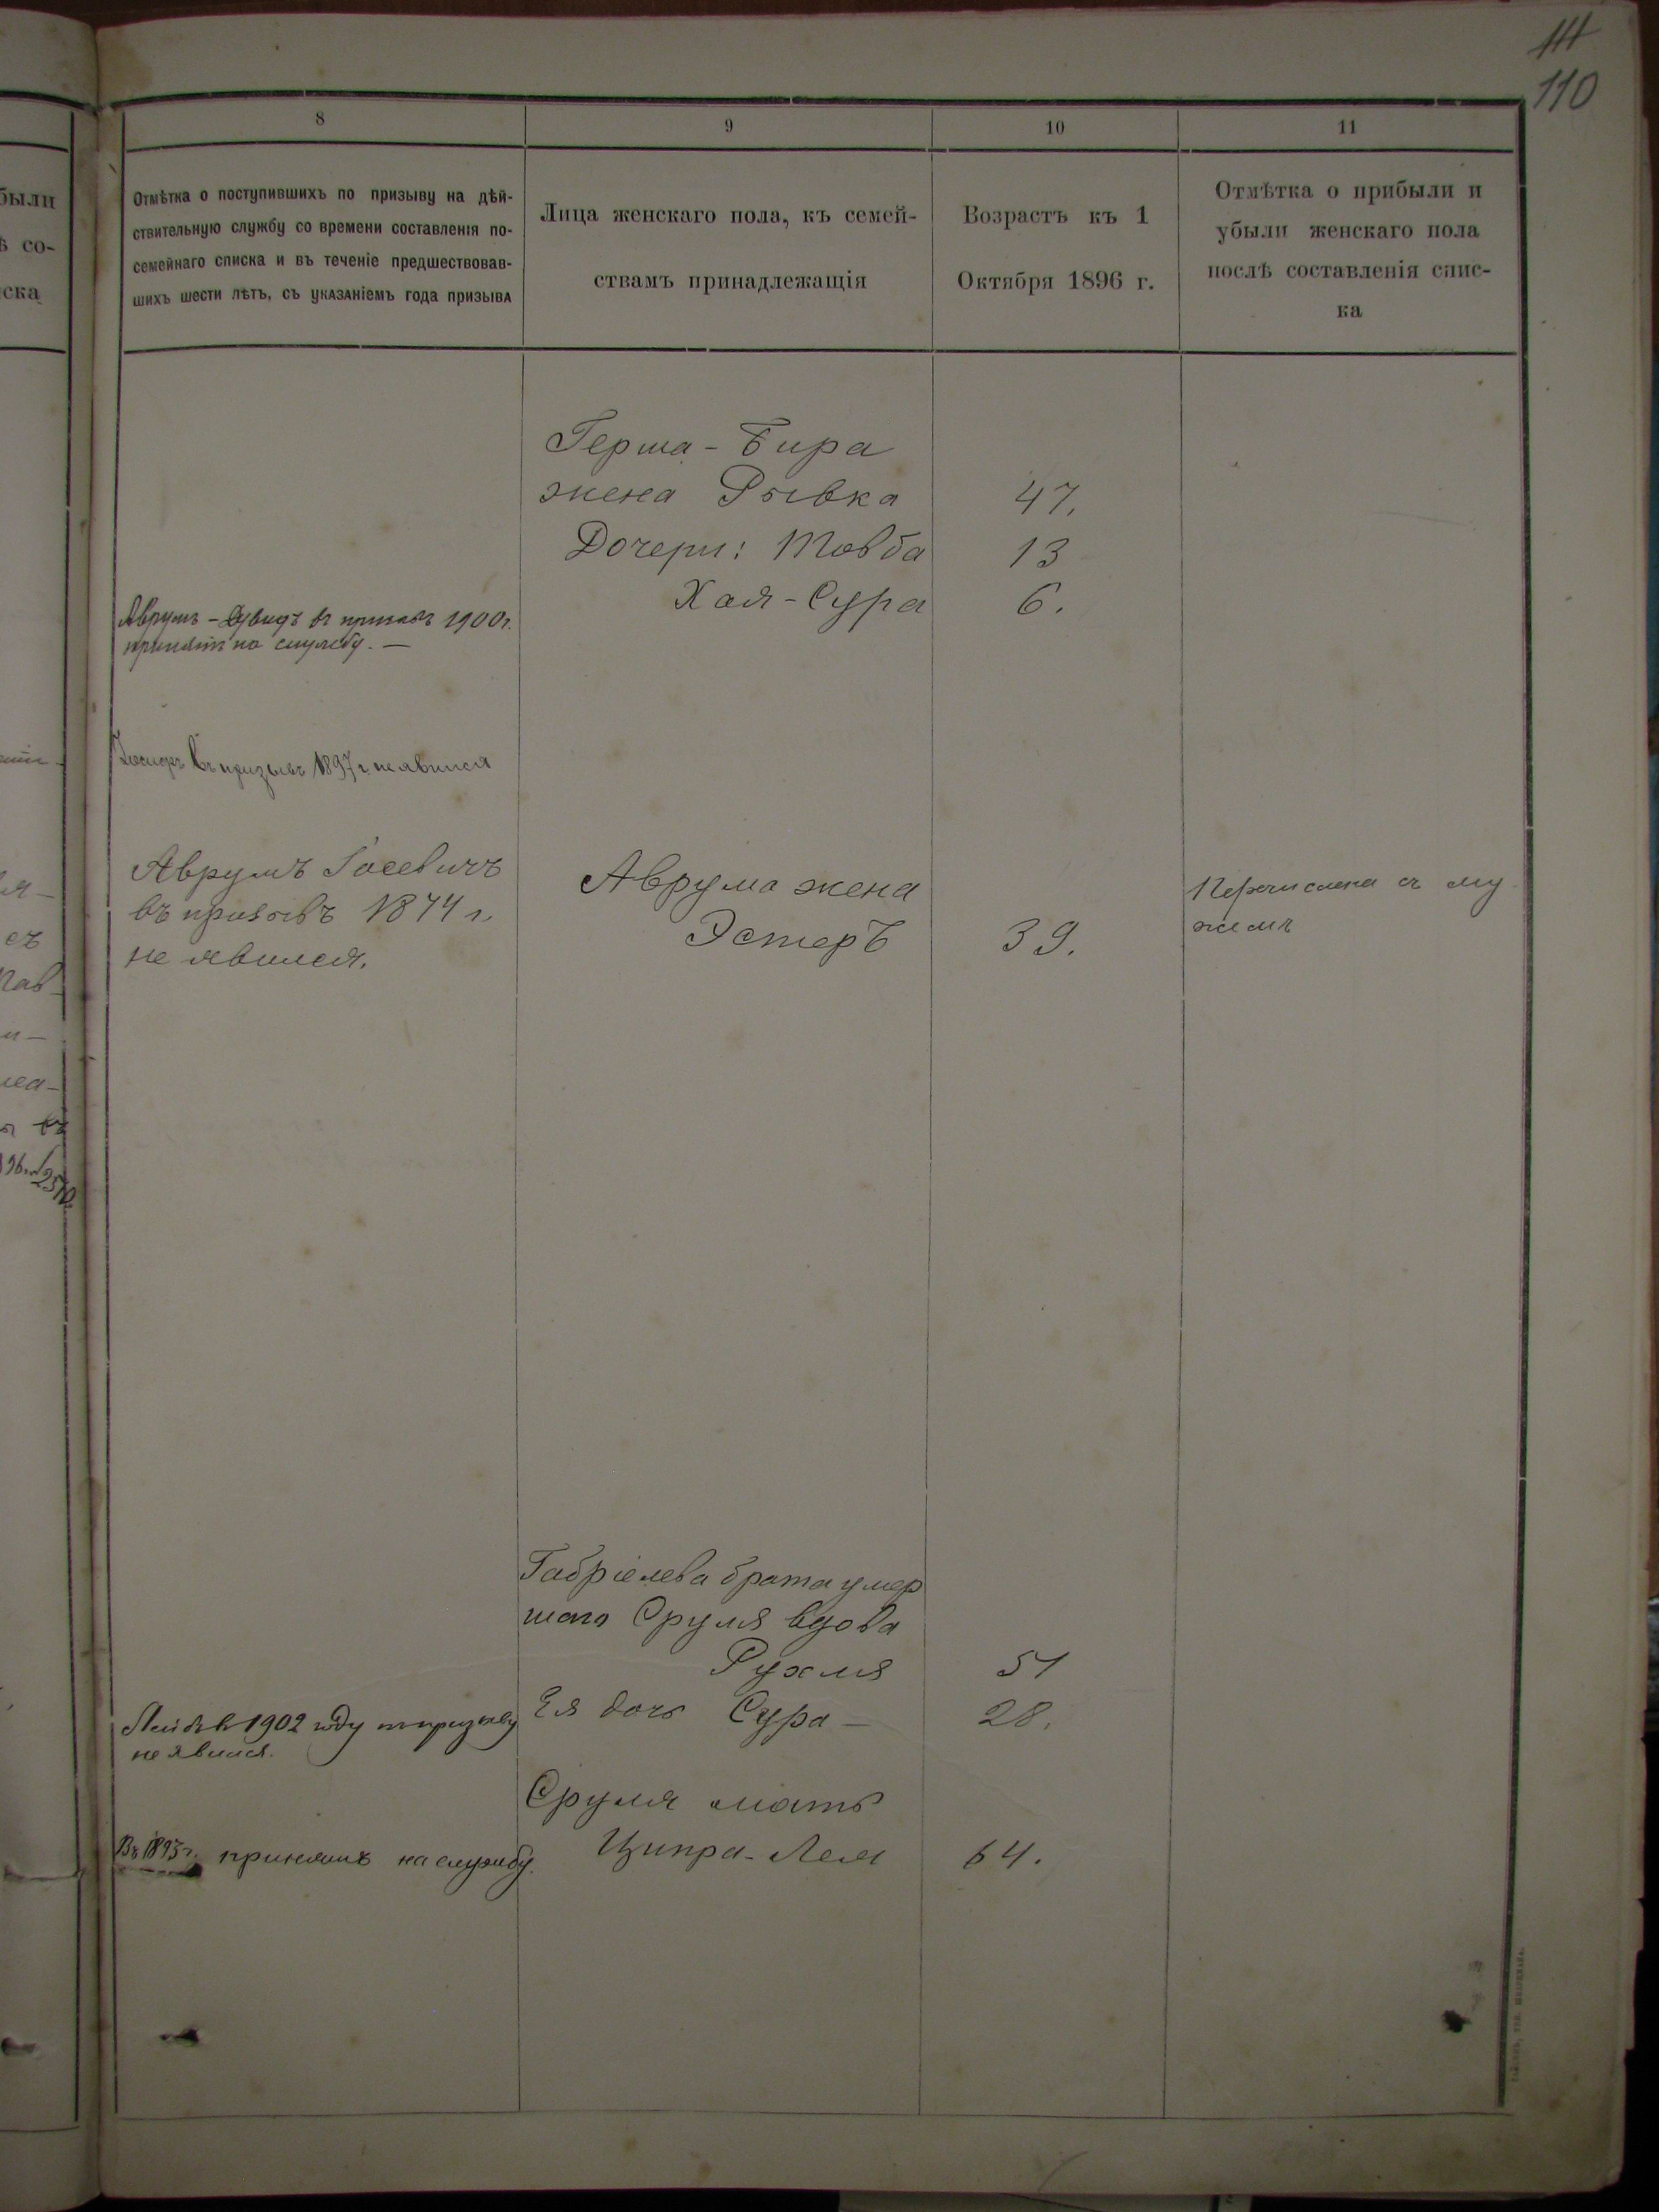 111
110
были
ѣ со-
ска
8
9
10
11
Отмѣтка о поступившихъ по призыву на дѣй-
ствительную службу со времени составленія по-
семейнаго списка и въ теченіе предшествовав-
шихъ шести лѣтъ, съ указаніемъ года призыва
Лица женскаго пола, къ семей-
ствамъ принадлежащія
Возрастъ къ 1
Октября 1896 г.
Отмѣтка о прибыли и
убыли женскаго пола
послѣ составленія спис-
ка
Герша-Бира
жена Рывка 47.
Дочери: Товба 13
Хая-Сура 6.
Аврумъ - въ призывъ 1900г.
принятъ на службу. —
въ призывъ 1897 г. не явился
Аврумъ Іосевичъ
въ призывъ 1874 г.
не явился.
Аврума жена
Эстеръ 39.
Перечислена съ му
жемъ
Габріелева брата умер
шаго Сруля вдова
Рухля 51
Ея дочь Сура — 28.
Лейбъ 1902 году призыву
не явился.
Сруля мать
Ципра-Лея 64.
Въ 1893 г. принятъ на службу.